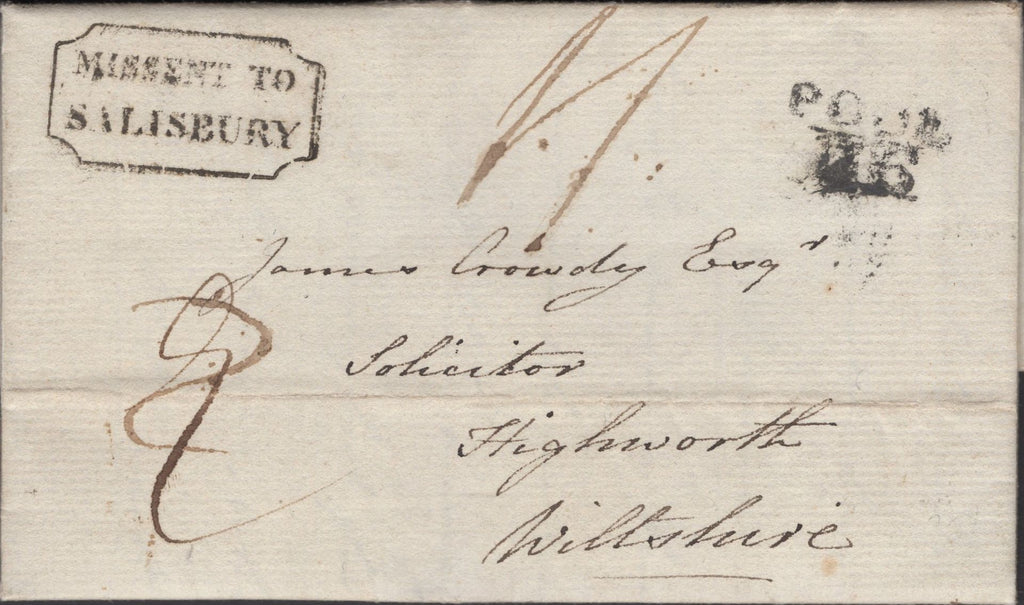 MISSENT TO
SALISBURY
James Crowdy Esqr.
Solicitor
Highworth
Wiltshire